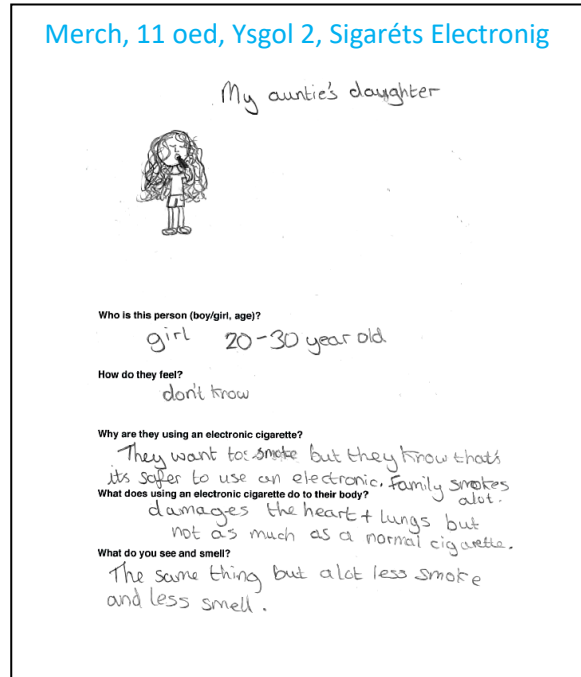 Merch, 11 oed, Ysgol 2, Sigaréts Electronig
My auntie's daughter
Who is this person (boy/girl, age)?
girl 20-30 year old
How do they feel?
don't know
Why are they using an electronic cigarette?
They want to smoke but they know thats
its safer to use an electronic. Family smokes
alot.
What does using an electronic cigarette do to their body?
damages the heart + lungs but
not as much as a normal cigarette.
What do you see and smell?
The same thing but alot less smoke
and less smell.